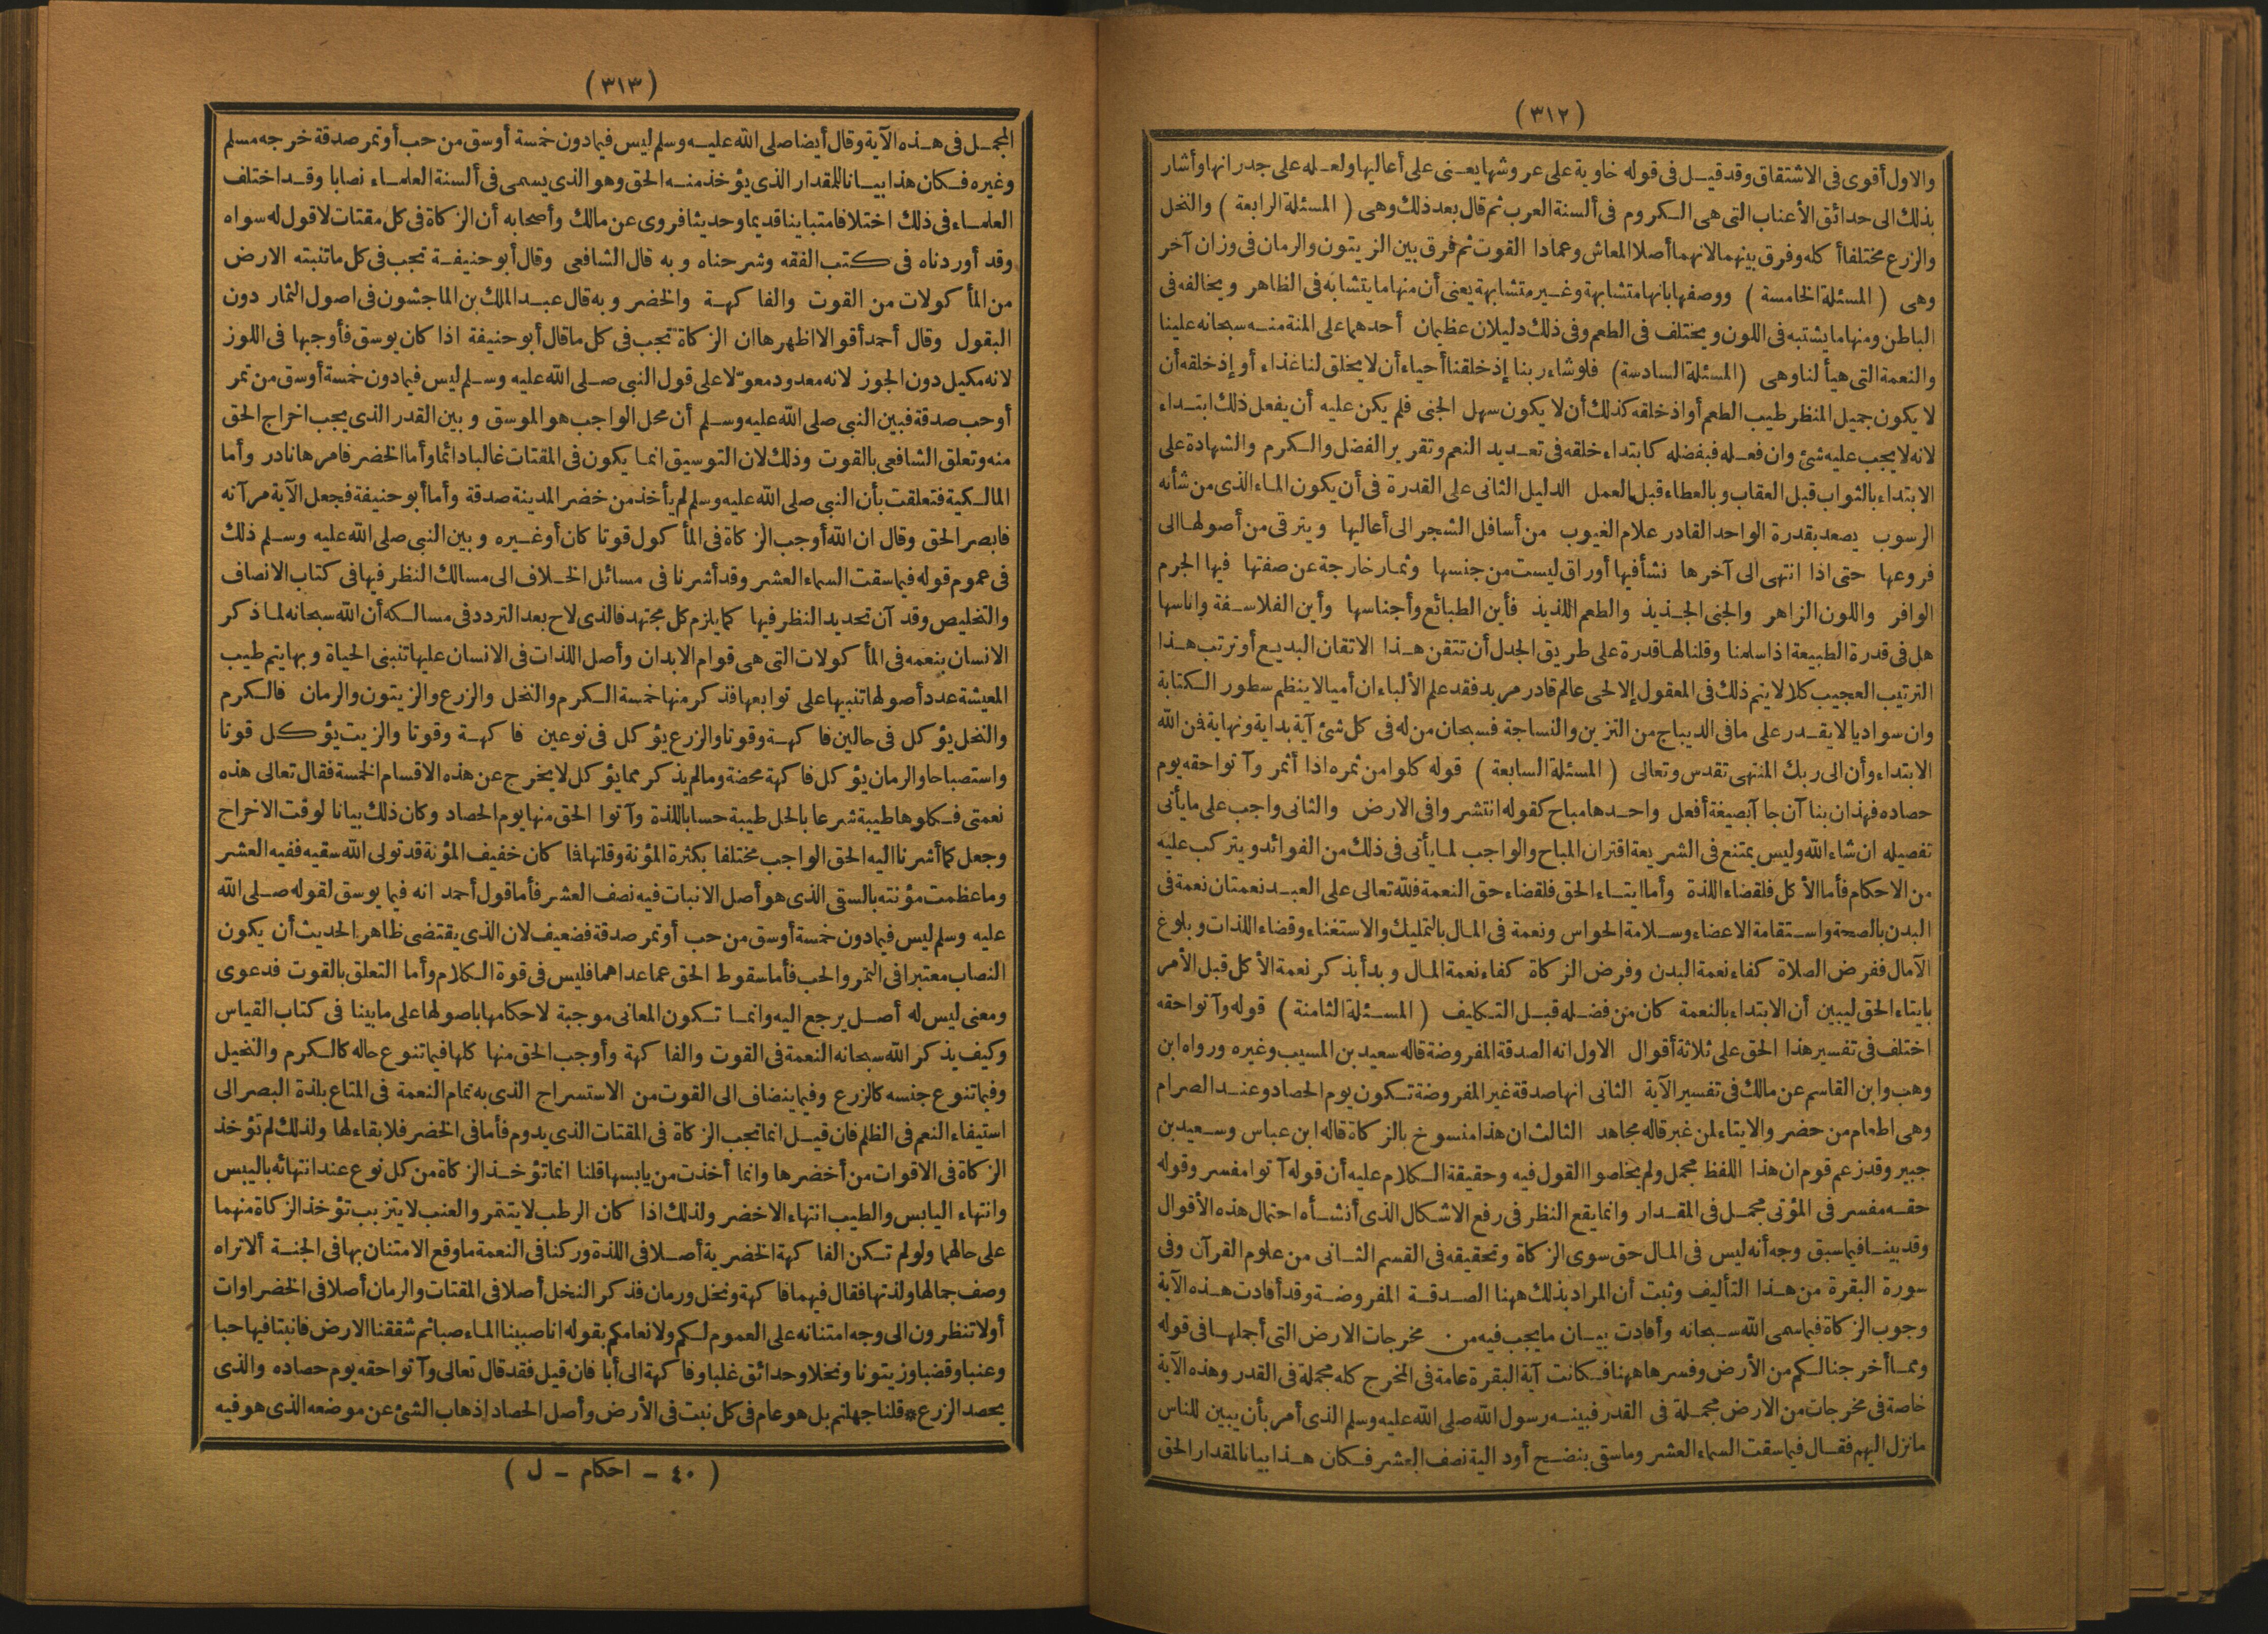 (٣١٢)
والاول أقوى فى الاشتقاق وقد قيل فى قوله خاوية على عروشها يعنى على أعاليها ولعله على جدرانها وأشار
بذلك الى حدائق الأعناب التى هى الكروم فى ألسنة العرب ثم قال بعد ذلك وهى (المسئلة الرابعة) والنخل
والزرع مختلفا أكله وفرق بينهما لانهما أصلا المعاش وعمادا القوت ثم فرق بين الزيتون والرمان فى وزان آخر
وهى (المسئلة الخامسة) ووصفها بانها متشابهة وغير متشابهة يعنى أن منها ما يتشابه فى الظاهر ويخالفه فى
الباطن ومنها ما يشتبه فى اللون ويختلف فى الطعم وفى ذلك دليلان عظيمان أحدهما على المنة منه سبحانه علينا
والنعمة التى هيأ لنا وهى (المسئلة السادسة) فلو شاء ربنا إذ خلقنا أحياء أن لا يخلق لنا غذاء أو إذ خلقه أن
لا يكون جميل المنظر طيب الطعم أو اذ خلقه كذلك أن لا يكون سهل الجنى فلم يكن عليه أن يفعل ذلك ابتداء
لانه لا يجب عليه شئ وان فعله فبفضله كابتداء خلقه فى تعديد النعم وتقرير الفضل والكرم والشهادة على
الابتداء بالثواب قبل العقاب وبالعطاء قبل العمل الدليل الثانى على القدرة فى أن يكون الماء الذى من شأنه
الرسوب يصعد بقدرة الواحد القادر علام الغيوب من أسافل الشجر الى أعاليها ويترقى من أصولها الى
فروعها حتى اذا انتهى الى آخرها نشأ فيها أوراق ليست من جنسها وثمار خارجة عن صفتها فيها الجرم
الوافر واللون الزاهر والجنى الجذيذ والطعم اللذيذ فأين الطبائع وأجناسها وأين الفلاسفة واناسها
هل فى قدرة الطبيعة اذا سلمنا وقلنا لها قدرة على طريق الجدل أن تتقن هذا الاتقان البديع أو ترتب هذا
الترتيب العجيب كلا لا يتم ذلك فى المعقول إلا لحى عالم قادر مريد فقد علم الألباء ان أميا لا ينظم سطور الكتابة
وان سواديا لا يقدر على ما فى الديباج من التزيين والنساجة فسبحان من له فى كل شئ آية بداية ونهاية فمن الله
الابتداء وأن الى ربك المنتهى تقدس وتعالى (المسئلة السابعة) قوله كلوا من ثمره اذا أثمر وآتوا حقه يوم
حصاده فهذان بنا آن جا آ بصيغة أفعل واحدها مباح كقوله انتشروا فى الارض والثانى واجب على ما يأتى
تفصيله ان شاء الله وليس يمتنع فى الشريعة اقتران المباح والواجب لما يأتى فى ذلك من الفوائد ويتركب عليه
من الاحكام فأما الأكل فلقضاء اللذة وأما ايتاء الحق فلقضاء حق النعمة فلله تعالى على العبد نعمتان نعمة فى
البدن بالصحة واستقامة الاعضاء وسلامة الحواس ونعمة فى المال بالتمليك والاستغناء وقضاء اللذات وبلوغ
الآمال ففرض الصلاة كفاء نعمة البدن وفرض الزكاة كفاء نعمة المال وبدأ بذكر نعمة الأكل قبل الأمر
بايتاء الحق ليبين أن الابتداء بالنعمة كان من فضله قبل التكليف (المسئلة الثامنة) قوله وآتوا حقه
اختلف فى تفسير هذا الحق على ثلاثة أقوال الاول انه الصدقة المفروضة قاله سعيد بن المسيب وغيره ورواه ابن
وهب وابن القاسم عن مالك فى تفسير الآية الثانى انها صدقة غير المفروضة تكون يوم الحصاد وعند الصرام
وهى اطعام من حضر والايتاء لمن غبر قاله مجاهد الثالث ان هذا منسوخ بالزكاة قاله ابن عباس وسعيد بن
جبير وقد زعم قوم ان هذا اللفظ مجمل ولم يخلصوا القول فيه وحقيقة الكلام عليه أن قوله آتوا مفسر وقوله
حقه مفسر فى المؤتى مجمل فى المقدار وانما يقع النظر فى رفع الاشكال الذى أنشأه احتمال هذه الأقوال
وقد بينا فيما سبق وجه أنه ليس فى المال حق سوى الزكاة وتحقيقه فى القسم الثانى من علوم القرآن وفى
سورة البقرة من هذا التأليف وثبت أن المراد بذلك ههنا الصدقة المفروضة وقد أفادت هذه الآية
وجوب الزكاة فيما سمى الله سبحانه وأفادت بيان ما يجب فيه من مخرجات الارض التى أجملها فى قوله
ومما أخرجنا لكم من الأرض وفسرها ههنا فكانت آية البقرة عامة فى المخرج كله مجملة فى القدر وهذه الآية
خاصة فى مخرجات من الارض مجملة فى القدر فبينه رسول الله صلى الله عليه وسلم الذى أمر بأن يبين للناس
مانزل اليهم فقال فيما سقت السماء العشر وما سقى بنضح أو دالية نصف العشر فكان هذا بيانا لمقدار الحق
(٣١٣)
المجمل فى هذه الآية وقال أيضا صلى الله عليه وسلم ليس فيما دون خمسة أوسق من حب أو تمر صدقة خرجه مسلم
وغيره فكان هذا بيانا للمقدار الذى يؤخذ منه الحق وهو الذى يسمى فى ألسنة العلماء نصابا وقد اختلف
العلماء فى ذلك اختلافا متباينا قديما وحديثا فروى عن مالك وأصحابه أن الزكاة فى كل مقتات لا قول له سواه
وقد أوردناه فى كتب الفقه وشرحناه وبه قال الشافعى وقال أبو حنيفة تجب فى كل ما تنبته الارض
من المأكولات من القوت والفاكهة والخضر وبه قال عبد الملك بن الماجشون فى اصول الثمار دون
البقول وقال أحمد أقوالا اظهرها ان الزكاة تجب فى كل ما قال أبو حنيفة اذا كان يوسق فأوجبها فى اللوز
لانه مكيل دون الجوز لانه معدود معوّلا على قول النبى صلى الله عليه وسلم ليس فيما دون خمسة أوسق من تمر
أو حب صدقة فبين النبى صلى الله عليه وسلم أن محل الواجب هو الموسق وبين القدر الذى يجب اخراج الحق
منه وتعلق الشافعى بالقوت وذلك لان التوسيق انما يكون فى المقتات غالبا دائما وأما الخضر فامرها نادر وأما
المالكية فتعلقت بأن النبى صلى الله عليه وسلم لم يأخذ من خضر المدينة صدقة وأما أبو حنيفة فجعل الآية مرآته
فابصر الحق وقال ان الله أوجب الزكاة فى المأكول قوتا كان أو غيره وبين النبى صلى الله عليه وسلم ذلك
فى عموم قوله فيما سقت السماء العشر وقد أشرنا فى مسائل الخلاف الى مسالك النظر فيها فى كتاب الانصاف
والتخليص وقد آن تحديد النظر فيها كما يلزم كل مجتهد فالذى لاح بعد التردد فى مسالكه أن الله سبحانه لما ذكر
الانسان بنعمه فى المأكولات التى هى قوام الابدان وأصل اللذات فى الانسان عليها تنبنى الحياة وبها يتم طيب
المعيشة عدد أصولها تنبيها على توابعها فذكر منها خمسة الكرم والنخل والزرع والزيتون والرمان فالكرم
والنخل يؤكل فى حالين فاكهة وقوتا والزرع يؤكل فى نوعين فاكهة وقوتا والزيت يؤكل قوتا
واستصباحا والرمان يؤكل فاكهة محضة ومالم يذكر مما يؤكل لا يخرج عن هذه الاقسام الخمسة فقال تعالى هذه
نعمتى فكلوها طيبة شرعا بالحل طيبة حسا باللذة وآتوا الحق منها يوم الحصاد وكان ذلك بيانا لوقت الاخراج
وجعل كما أشرنا اليه الحق الواجب مختلفا بكثرة المؤنة وقلتها فما كان خفيف المؤنة قد تولى الله سقيه ففيه العشر
وما عظمت مؤنته بالسقى الذى هو أصل الانبات فيه نصف العشر فأما قول أحمد انه فيما يوسق لقوله صلى الله
عليه وسلم ليس فيما دون خمسة أوسق من حب أو تمر صدقة فضعيف لان الذى يقتضى ظاهر الحديث أن يكون
النصاب معتبرا فى التمر والحب فأما سقوط الحق عما عداهما فليس فى قوة الكلام وأما التعلق بالقوت فدعوى
ومعنى ليس له أصل يرجع اليه وانما تكون المعانى موجبة لاحكامها باصولها على ما بينا فى كتاب القياس
وكيف يذكر الله سبحانه النعمة فى القوت والفاكهة وأوجب الحق منها كلها فيما تنوع حاله كالكرم والنخيل
وفيما تنوع جنسه كالزرع وفيما ينضاف الى القوت من الاستسراج الذى به تمام النعمة فى المتاع بلذة البصر الى
استيفاء النعم فى الظلم فان قيل انما تجب الزكاة فى المقتات الذى يدوم فأما فى الخضر فلا بقاء لها ولذلك لم تؤخذ
الزكاة فى الاقوات من أخضرها وانما أخذت من يابسها قلنا انما تؤخذ الزكاة من كل نوع عند انتهائه باليبس
وانتهاء اليابس والطيب انتهاء الاخضر ولذلك اذا كان الرطب لا يتتمر والعنب لا يتزبب تؤخذ الزكاة منهما
على حالهما ولو لم تكن الفاكهة الخضرية أصلا فى اللذة وركنا فى النعمة ما وقع الامتنان بها فى الجنة ألا تراه
وصف جمالها ولذتها فقال فيهما فاكهة ونخل ورمان فذكر النخل أصلا فى المقتات والرمان أصلا فى الخضراوات
أولا تنظرون الى وجه امتنانه على العموم لكم ولانعامكم بقوله انا صببنا الماء صبا ثم شققنا الارض فانبتنا فيها حبا
وعنبا وقضبا وزيتونا ونخلا وحدائق غلبا وفاكهة الى أبا فان قيل فقد قال تعالى وآتوا حقه يوم حصاده والذى
يحصد الزرع * قلنا جهلتم بل هو عام فى كل نبت فى الأرض وأصل الحصاد إذهاب الشئ عن موضعه الذى هو فيه
(٤٠ - احكام - ل)